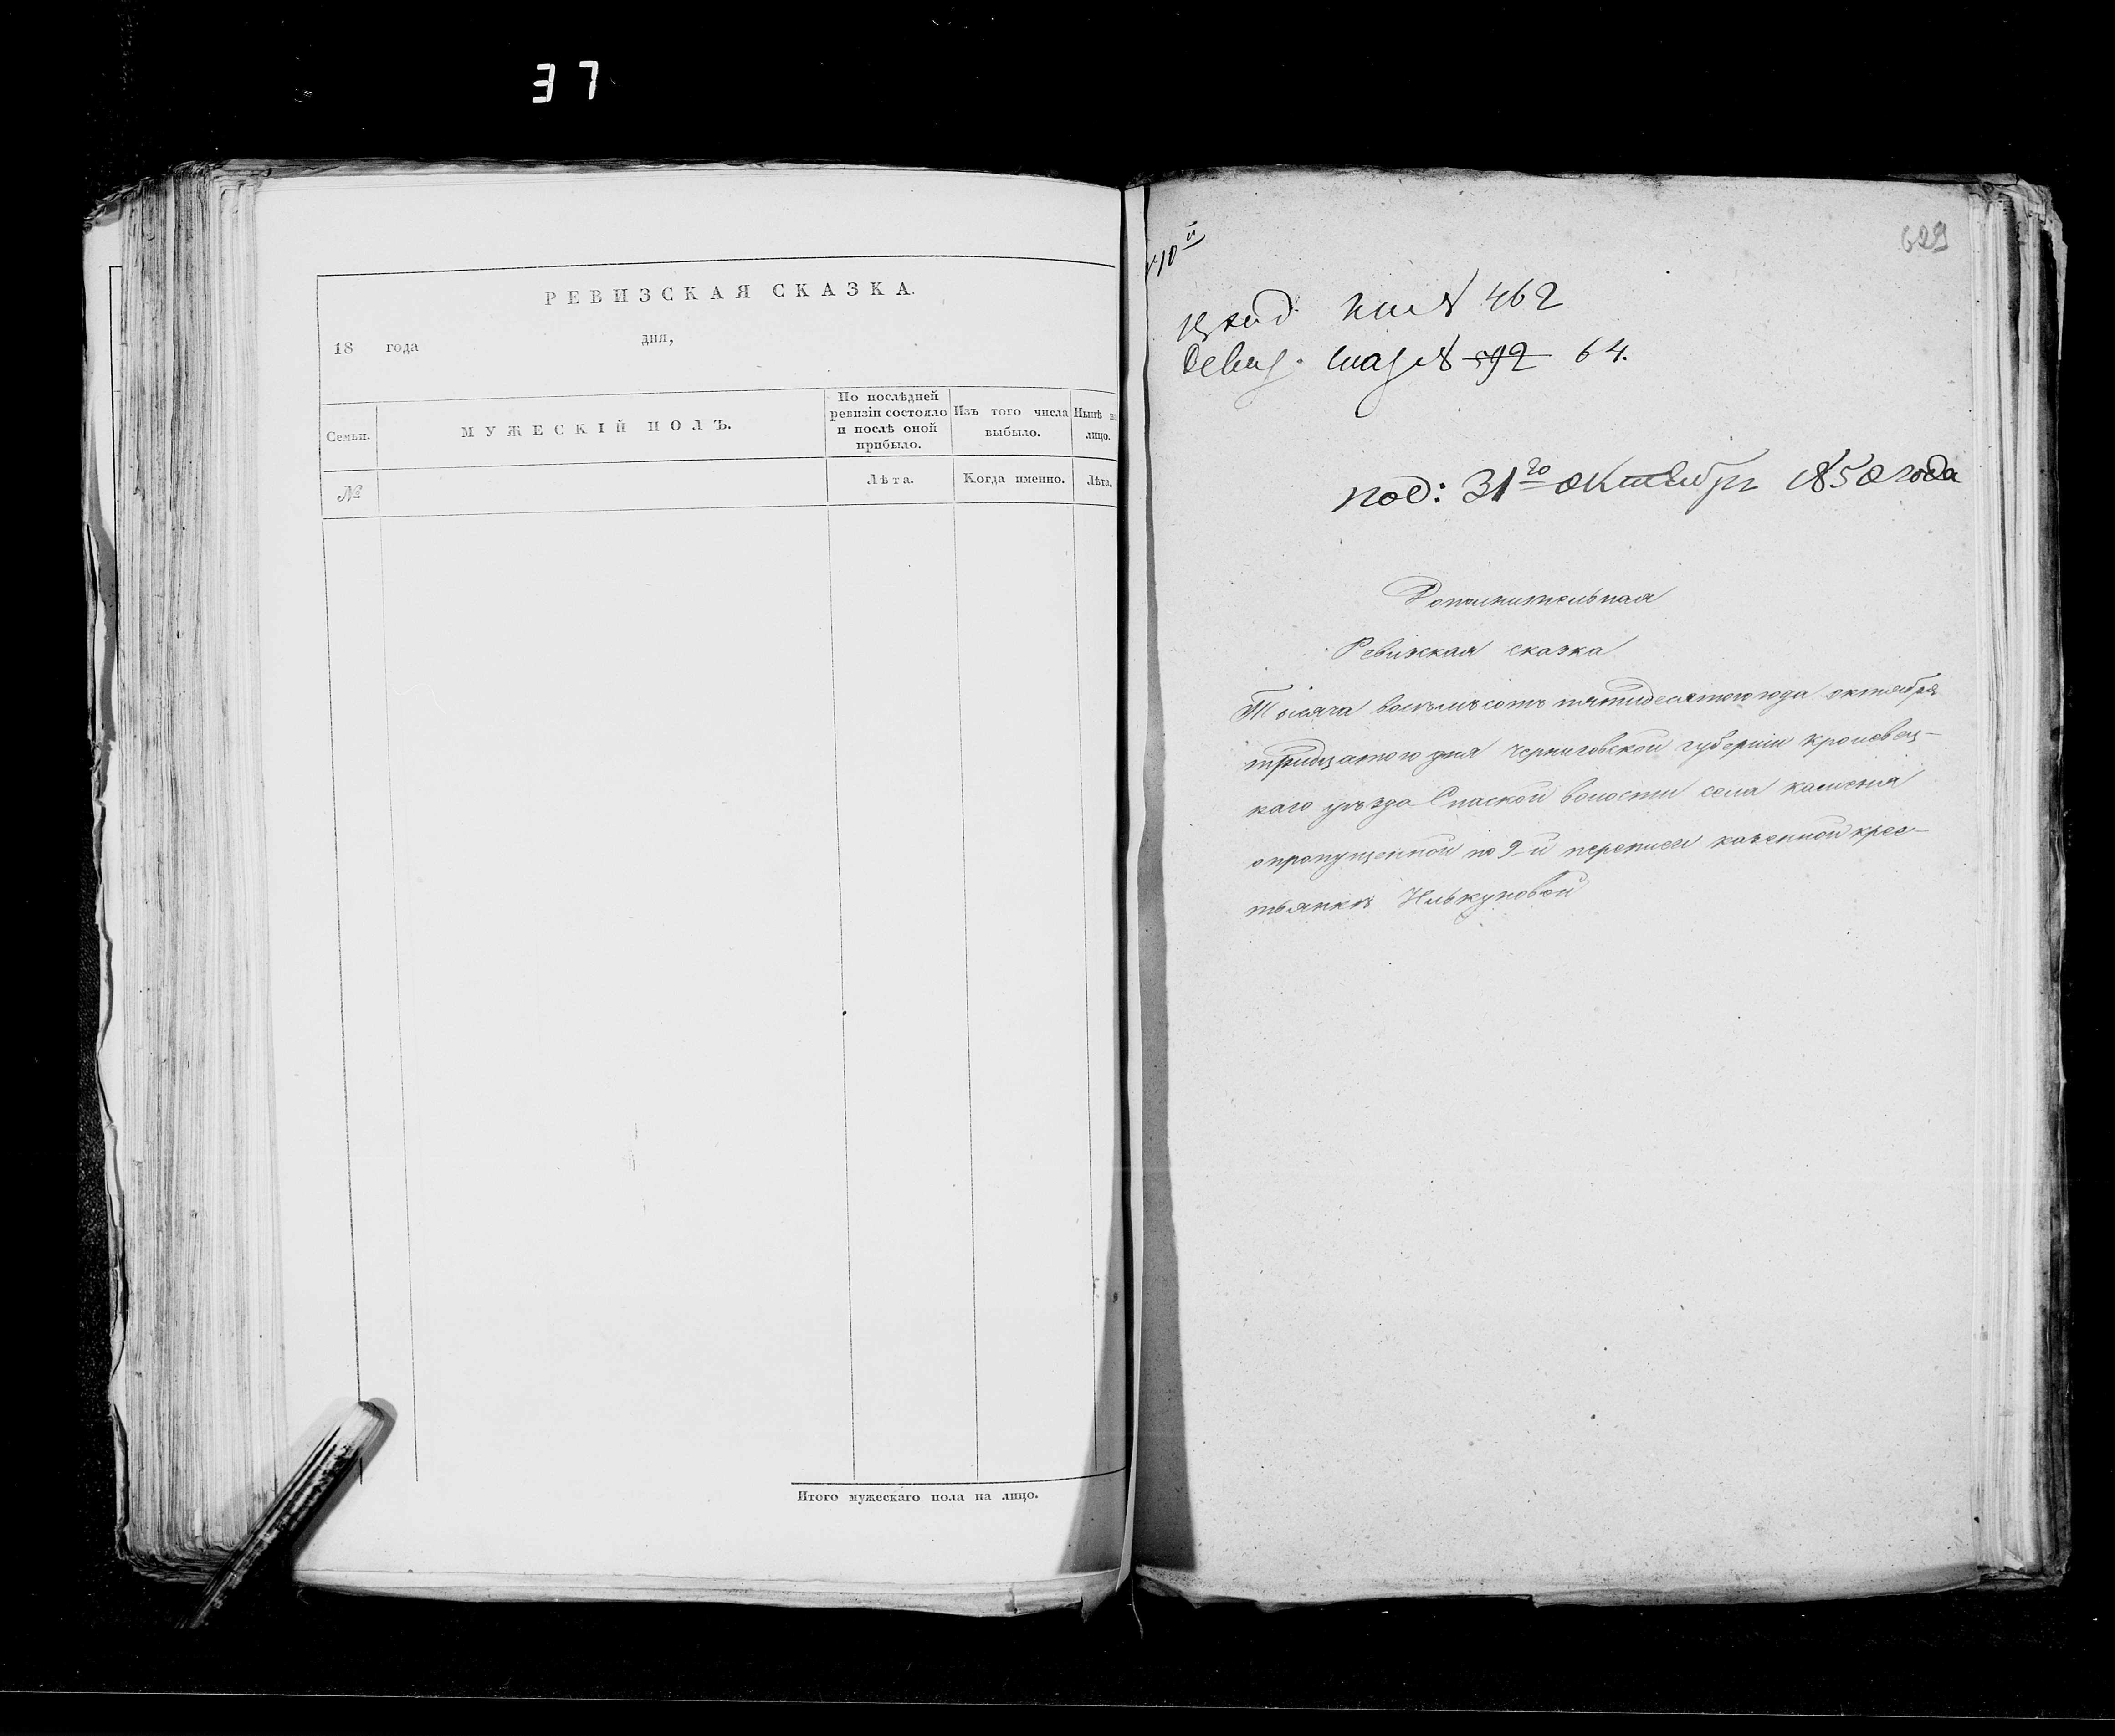 37
РЕВИЗСКАЯ СКАЗКА.
18 года дня,
Семьи. МУЖЕСКІЙ ПОЛЪ. По послѣдней ревизіи состояло и послѣ оной прибыло. Изъ того числа выбыло. Нынѣ на лицо.
№ Лѣта. Когда именно. Лѣта.
Итого мужескаго пола на лицо.
629
№ 462
№ 592 64.
под: 31го октября 1850 года
Дополнительная
Ревизская сказка
Тысяча восемьсотъ пятидесятого года октября
тридцатого дня Черниговской губерніи кролевец-
каго уѣзда Спаской волости села каменя
о пропущенной по 9-й переписи казенной крес-
тьянкѣ